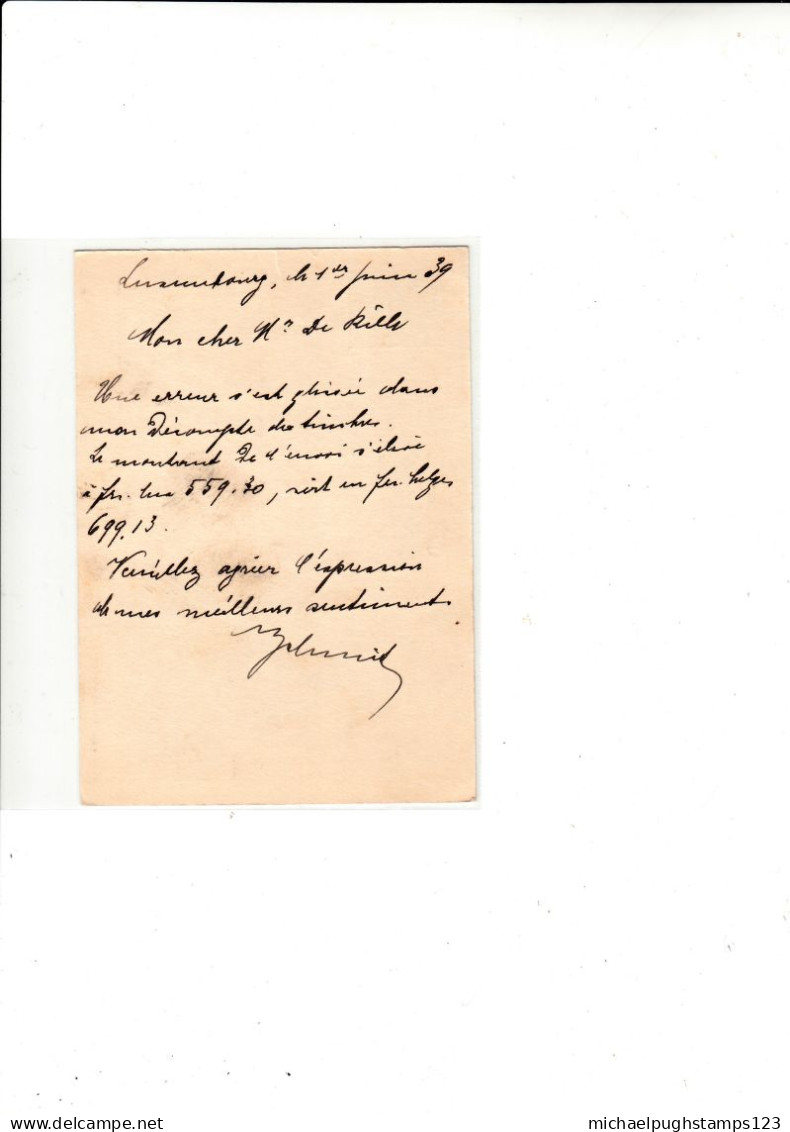 Luxembourg, le 1er juin 39
Mon cher Mr De
Une erreur s'est glissée dans
mon Décompte des timbres.
Le montant de l'envoi s'élève
à frs. lux 559.30, soit en frs. belges
699.13.
Veuillez agréer l'expression
de mes meilleurs sentiments.
delcampe.net
michaelpughstamps123